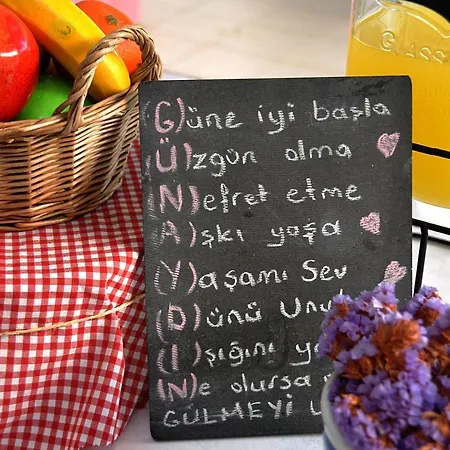 G)üne iyi başla
Ü)zgün olma
N)efret etme
A)şkı yaşa
Y)aşamı Sev
D)ünü
I)şığını
N)e olursa
GÜLMEYİ
GLASS